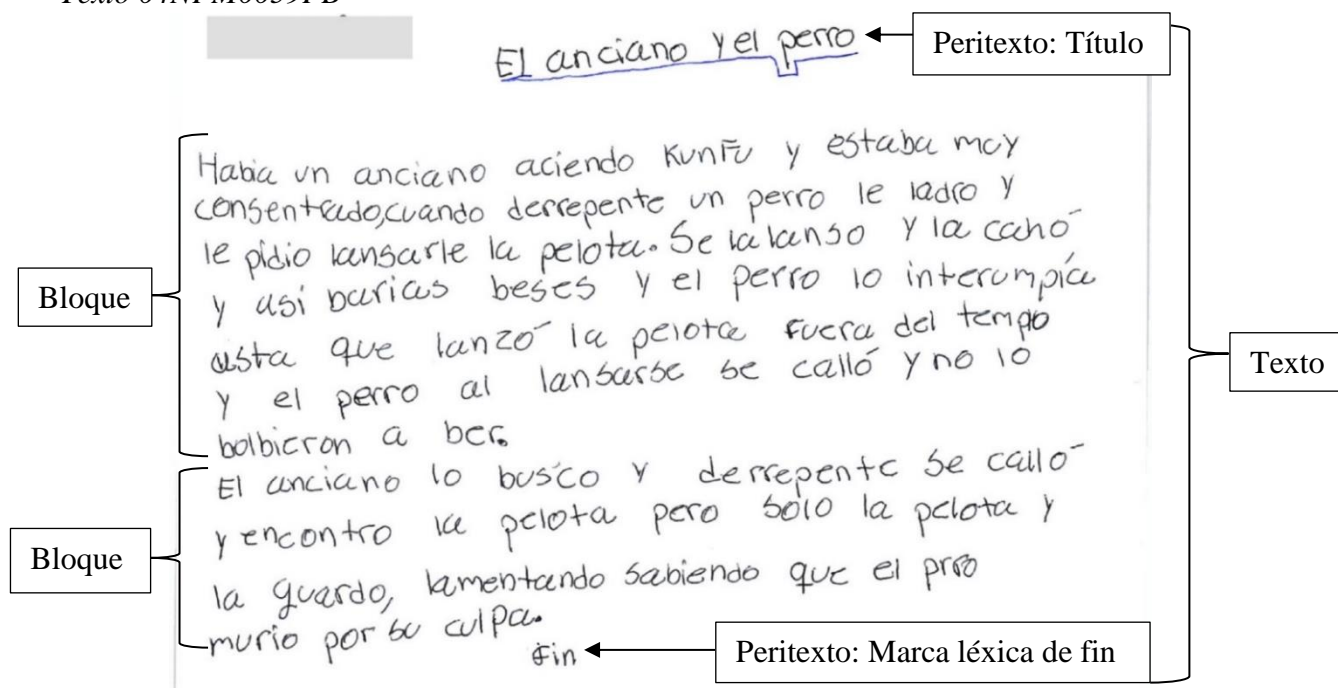 El anciano y el perro
Peritexto: Título
Habia un anciano aciendo KunFu y estaba muy
consentrado, cuando derrepente un perro le ladro y
le pidio lansarle la pelota. Se la lanso y la cahó
y así barias beses y el perro lo interumpía
asta que lanzó la pelota fuera del tempo
y el perro al lansarse se calló y no lo
bolbieron a ber.
Bloque
Texto
El anciano lo busco y derrepente se calló
y encontro la pelota pero solo la pelota y
la guardo, lamentando sabiendo que el prro
murio por su culpa.
Bloque
Fin
Peritexto: Marca léxica de fin